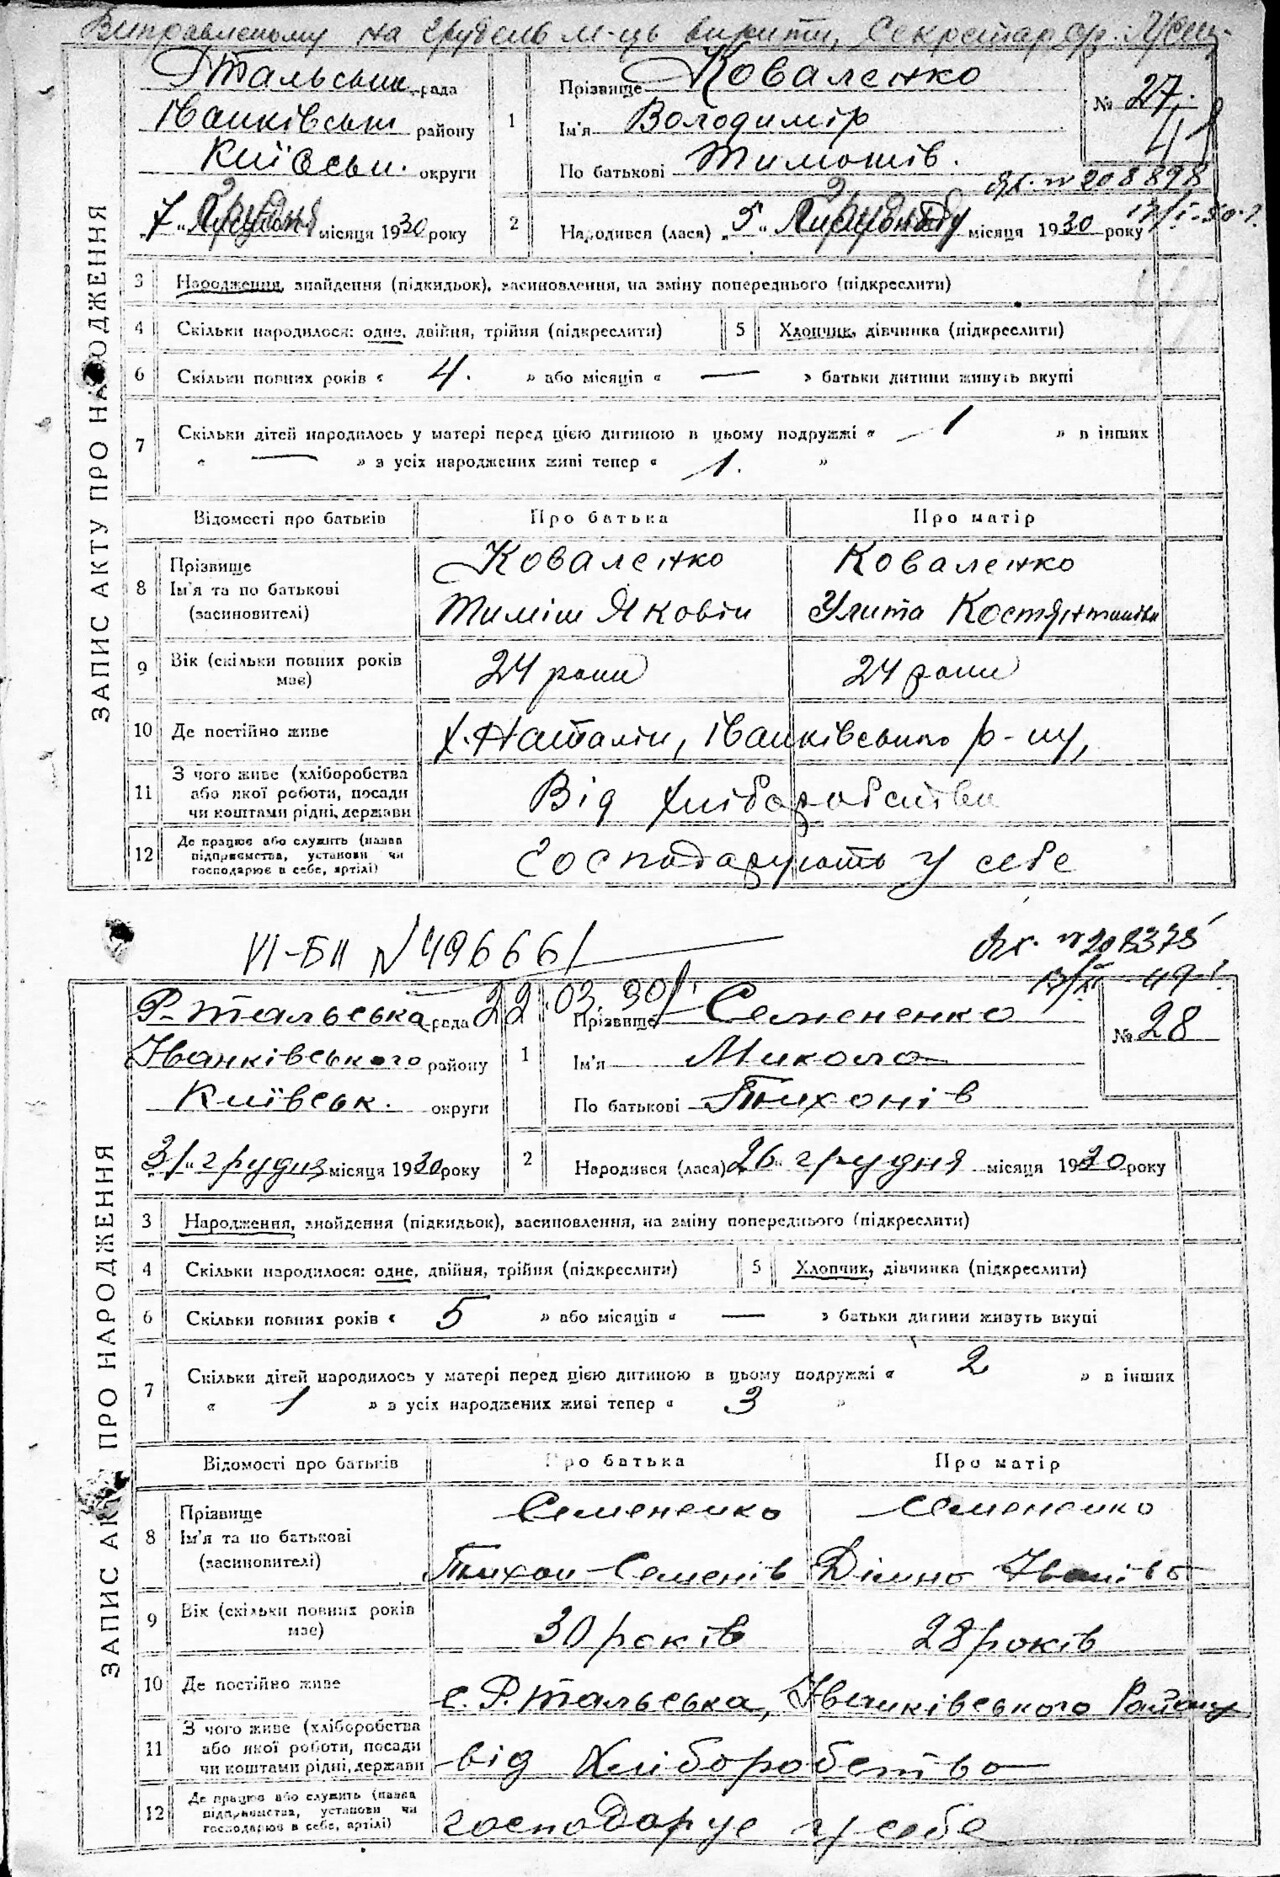 Виправленому на грудень м-ць вірити, Секретар
Р. Тальськ. рада
Іванківськ району
Київськ. округи
7 " Грудня місяця 1930 року
1 Прізвище Коваленко
Ім'я Володимір
По батькові Тимошів.
№ 27.
Вх. № 208898
2 Народився (лася) „ 5 " місяця 1930 року
ЗАПИС АКТУ ПРО НАРОДЖЕННЯ
3 Народження, знайдення (підкидьок), засиновлення, на зміну попереднього (підкреслити)
4 Скільки народилося: одне, двійня, трійня (підкреслити) 5 Хлопчик, дівчинка (підкреслити)
6 Скільки повних років « 4. » або місяців « — » батьки дитини живуть вкупі
7 Скільки дітей народилось у матері перед цією дитиною в цьому подружжі « 1 » в інших
« — » з усіх народжених живі тепер « 1. »
Відомості про батьків Про батька Про матір
8 Прізвище
Ім'я та по батькові
(засиновителі)
Коваленко Коваленко
Тиміш Яковів Улита Костянтинівн
9 Вік (скільки повних років
має)
24 роки 24 роки
10 Де постійно живе х. Наталін, Іванківського р-ну,
11 З чого живе (хліборобства
або якої роботи, посади
чи коштами рідні, держави
Від хліборобства
12 Де працює або служить (назва
підприємства, установи чи
господарює в себе, артілі)
Господарують у себе
VI-БН № 496661
22.03.90
Вх. № 208375
Р-тальська рада
Іванківського району
Київськ. округи
31 " грудня місяця 1930 року
1 Прізвище Семененко
Ім'я Микола
По батькові Тихонів
№ 28
2 Народився (лася) 26 " грудня місяця 1930 року
ЗАПИС АКТУ ПРО НАРОДЖЕННЯ
3 Народження, знайдення (підкидьок), засиновлення, на зміну попереднього (підкреслити)
4 Скільки народилося: одне, двійня, трійня (підкреслити) 5 Хлопчик, дівчинка (підкреслити)
6 Скільки повних років « 5 » або місяців « — » батьки дитини живуть вкупі
7 Скільки дітей народилось у матері перед цією дитиною в цьому подружжі « 2 » в інших
« 1 » з усіх народжених живі тепер « 3 »
Відомості про батьків Про батька Про матір
8 Прізвище
Ім'я та по батькові
(засиновителі)
Семененко Семененко
Тихон Семенів Іванівн
9 Вік (скільки повних років
має)
30 років 28 років
10 Де постійно живе с. Р. тальська, Іванківського Району
11 З чого живе (хліборобства
або якої роботи, посади
чи коштами рідні, держави
від Хліборобство
12 Де працює або служить (назва
підприємства, установи чи
господарює в себе, артілі)
господарує у себе